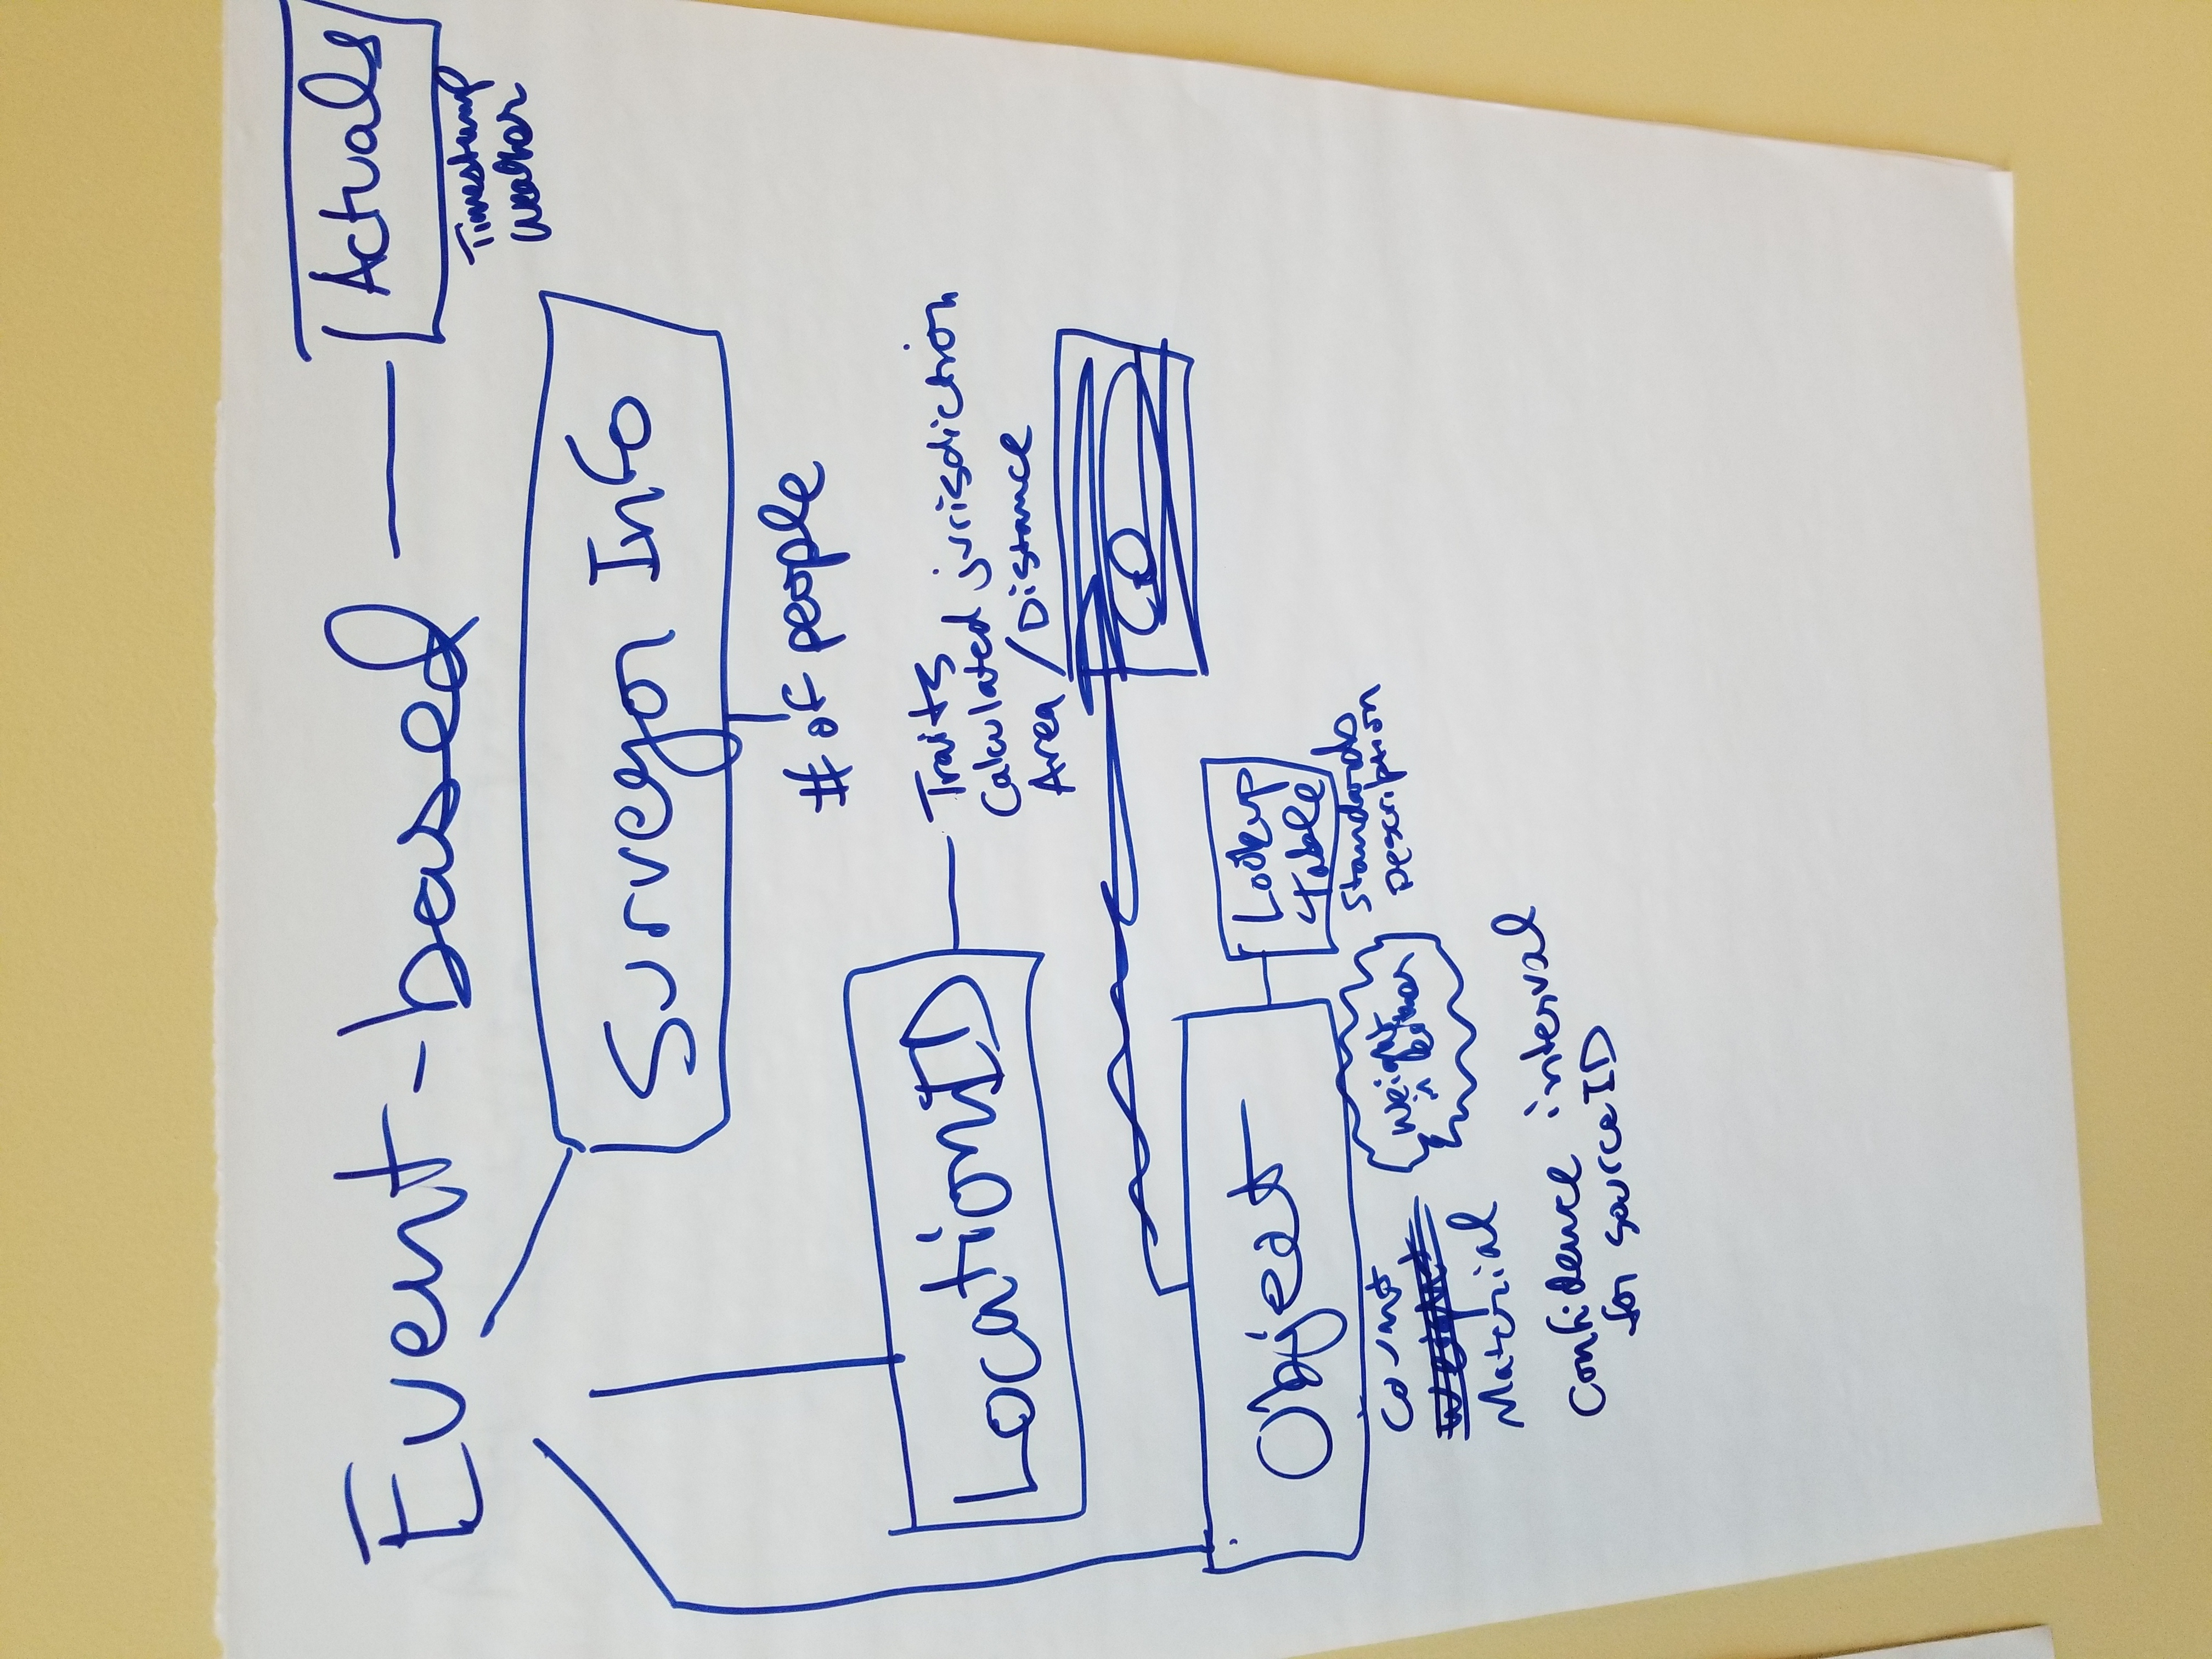 Event-based
Actuals
Timestamp
Weather
Surveyor Info
# of people
LocationID
Traits
Calculated jurisdiction
Area / Distance
Object
Lookup
Table
Standards
Description
Count
Weight
Material
Weight
is
Confidence interval
for sourceID